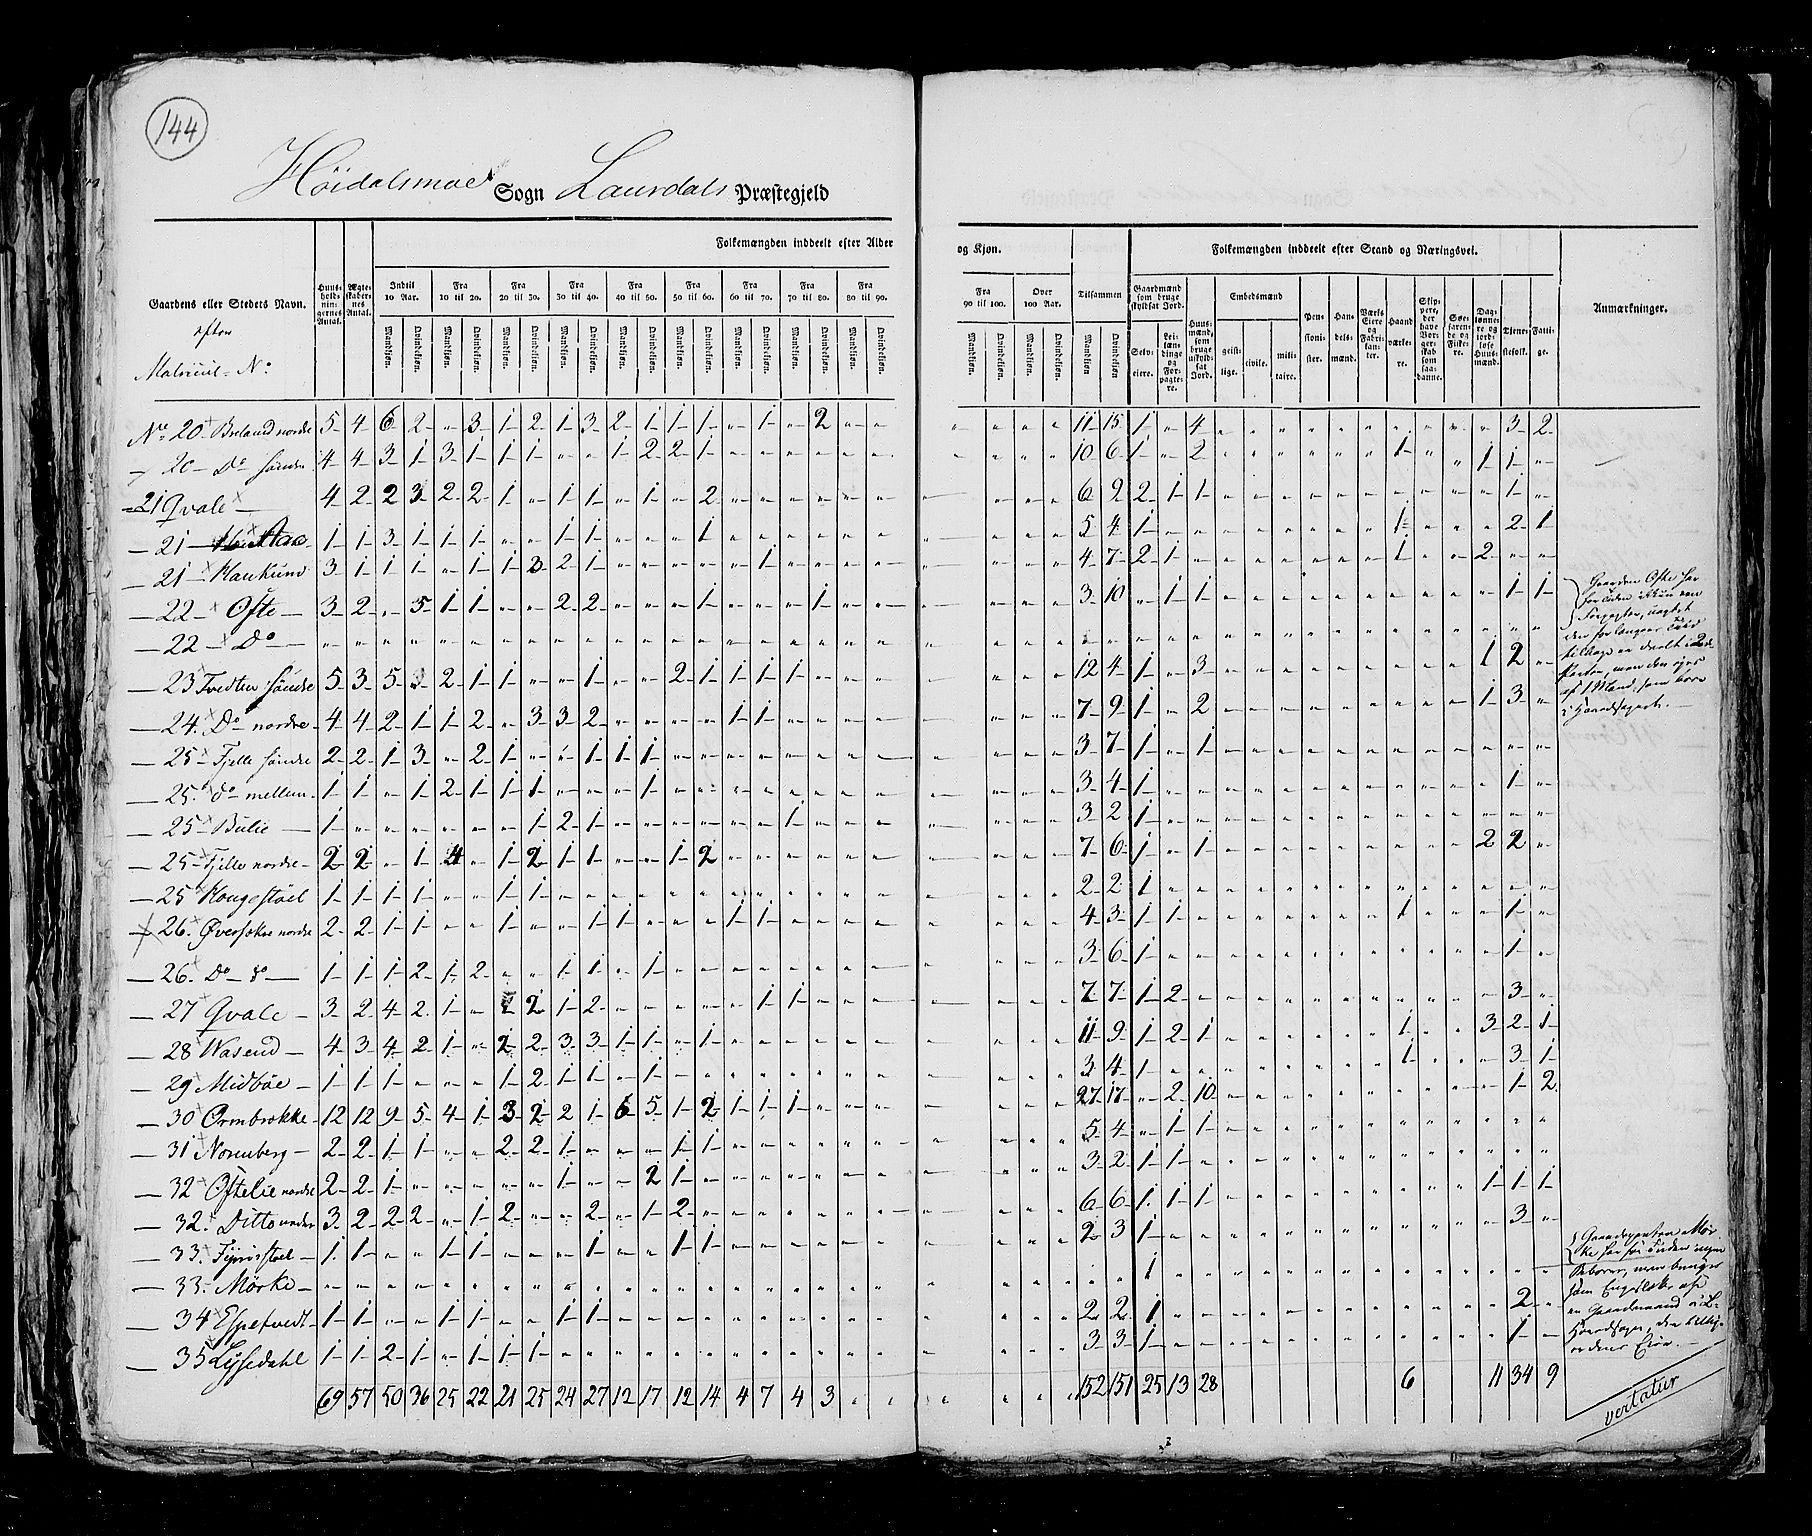 144
Höidalsmoe Sogn Laurdals Præstegjeld
Folkemængden inddeelt efter Alder og Kjøn.
Folkemængden inddeelt efter Stand og Næringsvei.
Gaardens eller Stedets Navn.
efter
Matricul-No
Huusholdningernes Antal.
Ægteskabernes Antal.
Indtil 10 Aar.
Fra 10 til 20.
Fra 20 til 30.
Fra 30 til 40.
Fra 40 til 50.
Fra 50 til 60.
Fra 60 til 70.
Fra 70 til 80.
Fra 80 til 90.
Fra 90 til 100.
Over 100 Aar.
Tilsammen
Mandkiøn. Qvindekiøn.
Gaardmænd som bruge skyldsat Jord.
Selveiere.
Leilændinge og Forpagtere.
Huusmænd, som bruge uskyldsat Jord.
Embedsmænd
geistlige. civile. militaire.
Pensionister.
Handelsmænd.
Værks Eiere og Fabrikanter.
Haandværkere.
Skippere, der have Borgerskab som saadanne.
Søefarende og Fiskere.
Daglønnere og jordløse Huusmænd.
Tjenestefolk.
Fattige.
Anmærkninger.
No 20 Breland nordre 5 4 6 2 " 3 1 2 1 3 2 1 1 1 " 1 " 2 " " " " " " 11 15 1 " 4 " " " " " " " " " " 3 2
20 Do søndre 4 4 3 1 3 1 1 1 " " 1 2 2 1 " " " " " " 10 6 1 " 2 " " " " " " 1 " " 1 1 "
21 Qvale 4 2 2 3 2 2 1 " 1 1 " 1 " 2 " " " " " " 6 9 2 1 1 " " " " " " " " " " 1 "
21 Aae 1 1 3 1 1 1 " " 1 1 " " " 1 " " " " " " 5 4 1 " " " " " " " " 1 " " " 2 1
21 Haukund 3 1 1 1 " 1 1 3 2 1 " " " " " 1 " " " " 4 7 2 1 " " " " " " " 1 " " 2 " "
22 Ofte 3 2 " 5 1 1 " " 2 2 " " " 1 " " " 1 " " 3 10 " 1 1 " " " " " " " " " " 1 1
22 Do " " " " " " " " " " " " " " " " " " " "
23 Tvedten søndre 5 3 5 3 2 1 1 " " 1 " " 2 1 1 1 1 " " " 12 4 1 " 3 " " " " " " " " " 1 2 "
24 Do nordre 4 4 2 1 1 2 " 3 3 2 " " " " 1 1 " " " " 7 9 1 " 2 " " " " " " " " " 1 3 "
25 Fjelle søndre 2 2 1 3 " 2 1 " " 1 1 1 " " " " " " " " 3 7 1 " 1 " " " " " " " " " " " "
25 do mellem 1 1 " 1 2 1 1 1 " " " 1 " " " " " " " " 3 4 1 " " " " " " " " " " " " 1 "
25 Bulie 1 " " " " " " 1 2 1 " " " " " 1 " " " " 3 2 1 " " " " " " " " " " " " " "
25 Fjelle nordre 2 2 " 1 4 " 1 2 1 1 " " 1 2 " " " " " " 7 6 1 " 1 " " " " " " " " " 2 2 "
25 Kongestöel 1 1 1 1 " " 1 1 " " " " " " " " " " " " 2 2 1 " " " " " " " " " " " " " "
26 Øversøkre nordre 2 2 1 1 " " 1 " 1 1 1 " " " 1 1 " " " " 4 3 1 1 " " " " " " " 1 " " " 1 "
26 Do do 1 1 1 2 1 2 " " 1 1 " 1 " " " " " " " " 3 6 1 " " " " " " " " " " " " 1 "
27 Qvale 3 2 4 2 1 " 1 2 1 2 " " " " 1 1 " " " " 7 7 1 2 " " " " " " " " " " " 3 "
28 Wasend 4 3 4 2 1 " 2 2 3 3 1 1 " 1 " " " " " " 11 9 1 2 1 " " " " " " 1 " " 3 2 1
29 Midböe 1 1 1 " " " 1 2 1 1 " 1 " " " " " " " " 3 4 " " " " " " " " " 1 " " " 3 1
30 Ormbrekke 12 12 9 5 4 1 3 2 2 1 6 5 1 2 1 1 1 " " " 27 17 " 2 10 " " " " " " " " " " 1 2
31 Normberg 2 2 1 1 " " 2 2 1 " " " 1 1 " " " " " " 5 4 " 1 1 " " " " " " " " " " " "
32 Oftelie nordre 2 2 1 " " " " " 1 " " 2 1 " " " " " " " 3 2 1 1 " " " " " " " " " " " " "
32 Ditto 3 2 2 2 " 1 2 " " 2 " 1 2 " " " " " " " 6 6 1 1 1 " " " " " " " " " 1 1 1
33 Fyristoel 1 1 " " 1 1 " " " 1 " " 1 1 " " " " " " 2 3 1 " " " " " " " " " " " " 3 "
33 Mörke " " " " " " " " " " " " " " " " " " " " 1
34 Espetvedt 1 1 " " 1 1 " " 1 1 " " " " " " " " " " 2 2 1 " " " " " " " " " " " " 2 "
35 Lysedahl 1 1 2 1 " 1 1 1 " " " " " " " " " " " " 3 3 1 " " " " " " " " " " " " 1 "
69 57 50 36 25 22 21 25 24 27 12 17 12 14 4 7 4 3 152 151 25 13 28 6 11 34 9
Gaarden Ofte har
for Tiden ikkun een
Forpagter, uagtet
den for længere Tid
tilbage er deelt i 2de
Parter, men den eies
af 1 Mand, som boer
i Hovedsognet.
Gaardeparten Mör
ke har for Tiden ingen
Beboer, men bruges
som Engeslæt af
en Gaardmand i
Hovedsognet, den
Eier.
vertatur